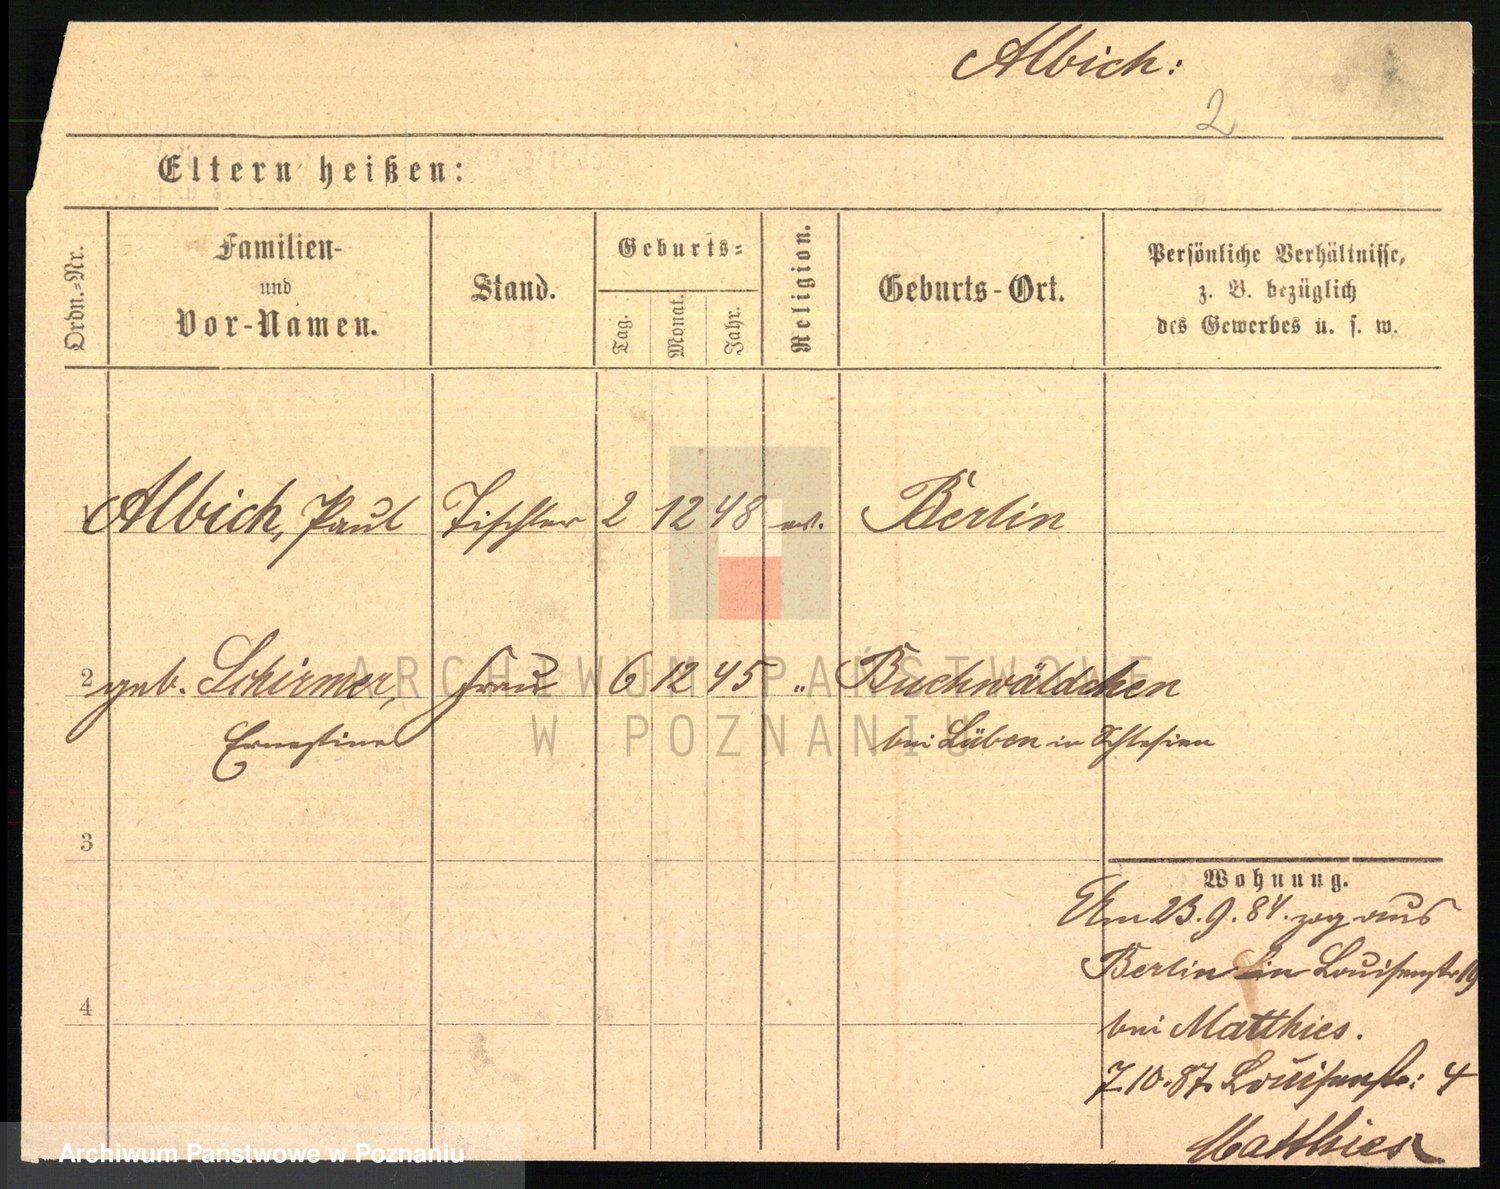 Albich:
2
Eltern heißen:
Ordn.-Nr.
Familien-
und
Vor-Namen.
Stand.
Geburts-
Tag.
Monat.
Jahr.
Religion.
Geburts-Ort.
Persönliche Verhältnisse,
z. B. bezüglich
des Gewerbes u. s. w.
1 Albich, Paul Tischler 2 12 48 ev. Berlin
2 geb. Schirmer, Frau 6 12 45 " Buchwäldchen
Ernestine bei Lüben in Schlesien
ARCHIWUM PAŃSTWOWE
W POZNANIU
3
Wohnung.
Am 23.9.84. zog aus
Berlin in Louisenstr 19
4
bei Matthies.
7.10.87. Louisenstr: 4
Matthies
Archiwum Państwowe w Poznaniu